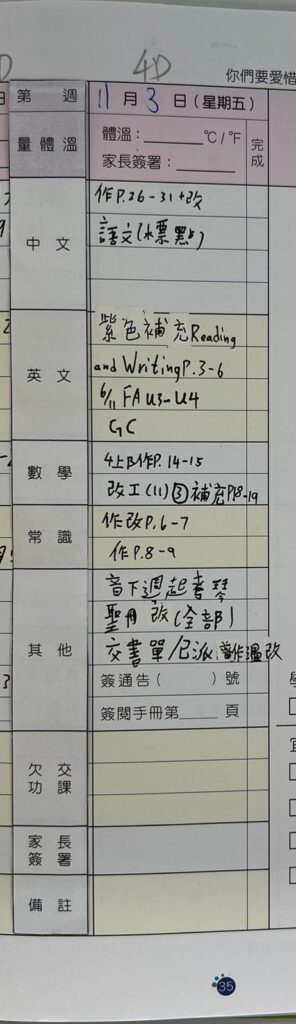 4D
你們要愛惜
第 週 11 月 3 日(星期五)
量體溫 體溫:______ ℃/℉ 完成
家長簽署:______
中文
作P.26-31+改
語文(水標點)
英文
紫色補充Reading
and Writing P.3-6
6/11 FA U3-U4
GC
數學
4上B作P.14-15
改工(11) ③補充P18-19
常識
作改P.6-7
作P.8-9
其他
音下週起書琴
聖冊 改(全部)
交書單/已派
簽通告( )號
簽閱手冊第____頁
欠交功課
家長簽署
備註
35